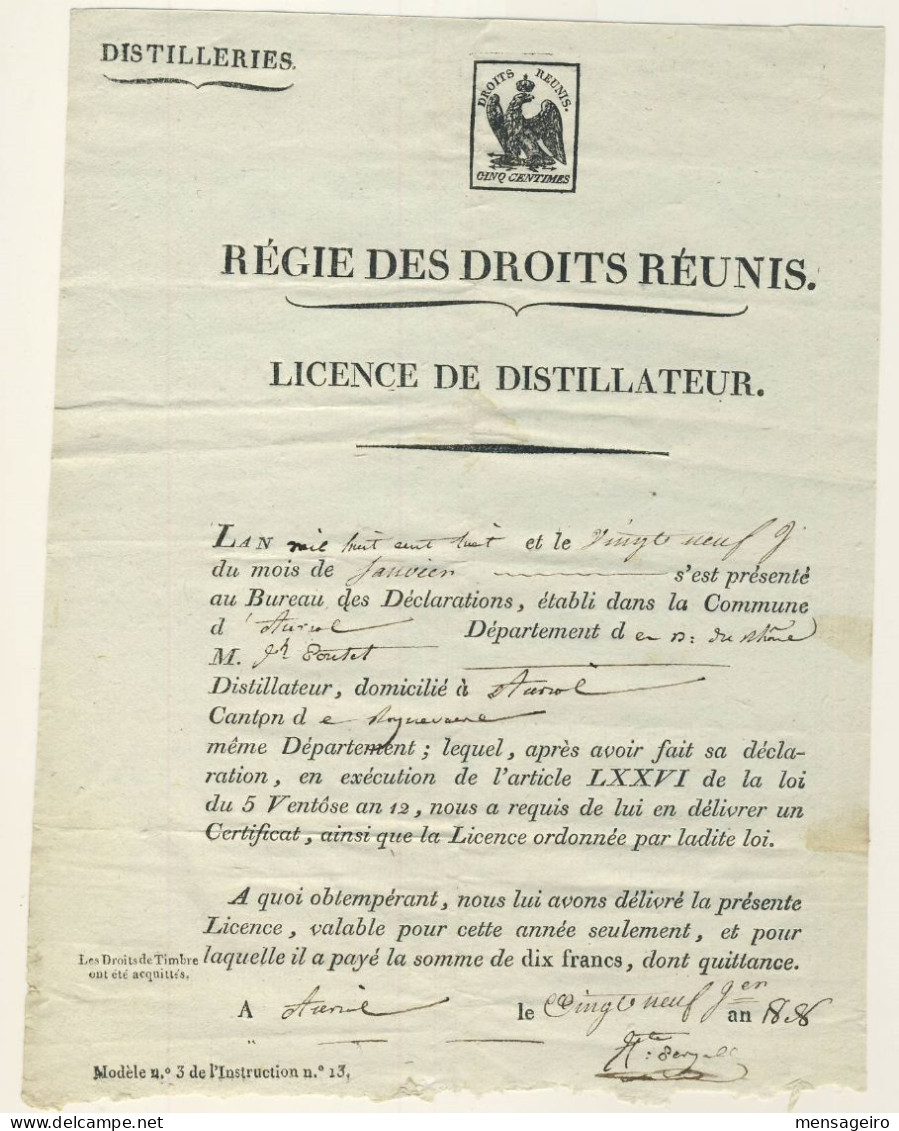 DISTILLERIES.
DROITS REUNIS.
CINQ CENTIMES
RÉGIE DES DROITS RÉUNIS.
LICENCE DE DISTILLATEUR.
LAN mil huit cent huit et le vingt neuf
du mois de Janvier s'est présenté
au Bureau des Déclarations, établi dans la Commune
d'Auriol Département d es B: du Rhône
M. Jh
Distillateur, domicilié à Auriol
Canton d e Roquevaire
même Département ; lequel, après avoir fait sa décla-
ration, en exécution de l'article LXXVI de la loi
du 5 Ventôse an 12, nous a requis de lui en délivrer un
Certificat, ainsi que la Licence ordonnée par ladite loi.
A quoi obtempérant, nous lui avons délivré la présente
Licence, valable pour cette année seulement, et pour
laquelle il a payé la somme de dix francs, dont quittance.
Les Droits de Timbre
ont été acquittés.
A Auriol le vingt neuf Jer an
Modèle n.º 3 de l'Instruction n.º 13.
mensageiro